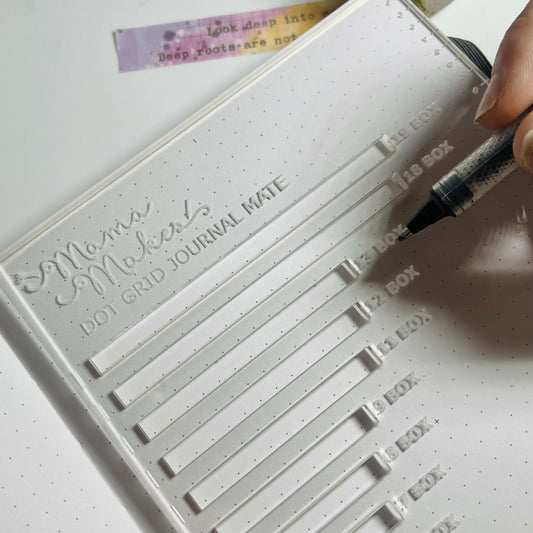 Look deep into
Deep roots are not
1
2
3
4
5
6
Mama
Makes!
DOT GRID JOURNAL MATE
19 BOX
18 BOX
13 BOX
12 BOX
11 BOX
9 BOX
8 BOX
7 BOX
BOX